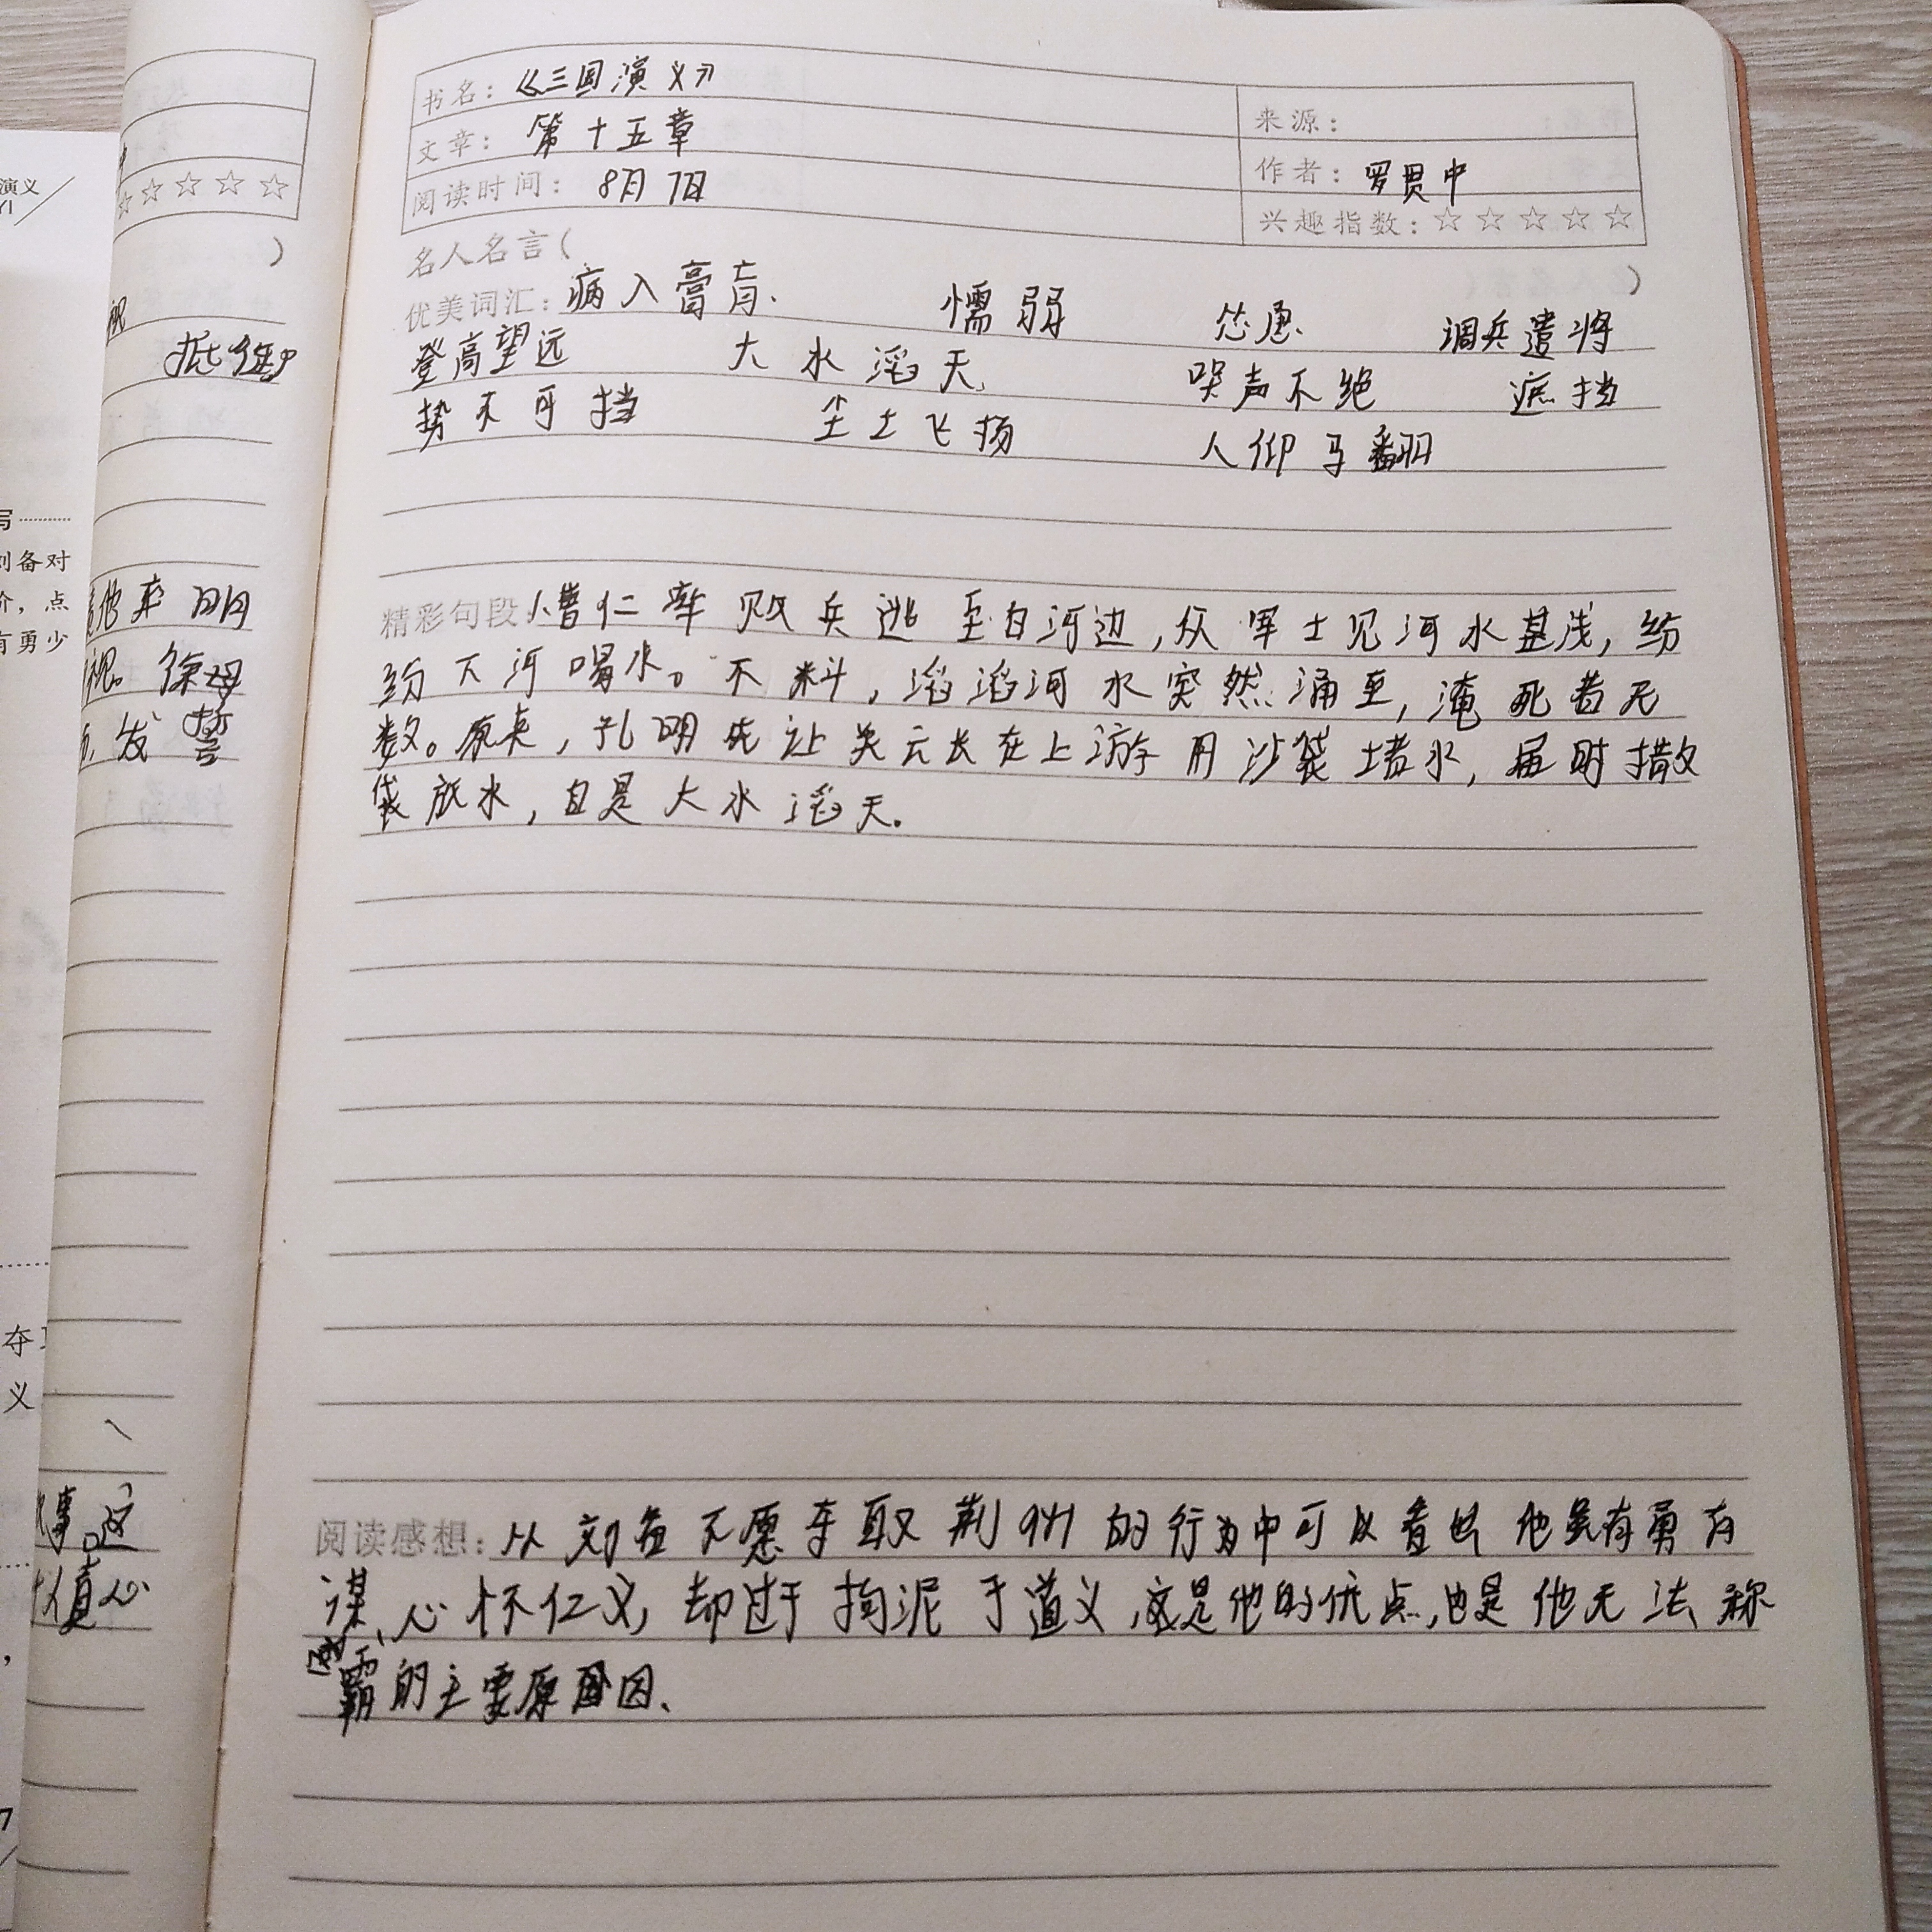 书名：《三国演义》
来源：
文章：第十五章
作者：罗贯中
阅读时间：8月7日
兴趣指数：☆☆☆☆☆
名人名言（ ）
优美词汇：病入膏肓、 懦弱 怂恿、 调兵遣将
登高望远 大水滔天、 哭声不绝 遮挡
势不可挡 尘土飞扬 人仰马翻
精彩句段 曹仁率败兵逃至白河边,从军士见河水甚浅,纷
纷下河喝水。不料,滔滔河水突然涌至,淹死者无
数。原来,孔明先让关云长在上游用沙袋堵水,届时撤
袋放水,自是大水滔天。
阅读感想：从刘备不愿夺取荆州的行为中可以看出他虽有勇有
谋、心怀仁义,却过于拘泥于道义,这是他的优点,也是他无法称
霸的主要原因、
演义
YI
☆☆☆☆
）
抵御
写
刘备对
介，点
有勇少
他来
视。徐母
发誓
夺
义
事。这
值心
7